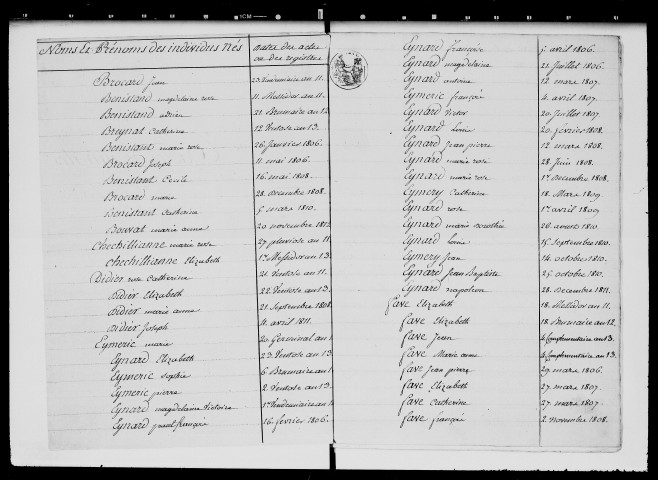 Noms et Prénoms des individus Nés
Dates des actes
ou des registres
Brocard Jean 23 Vendemiaire an 11.
Benistand magdelaine rose 11. Messidor an 11.
Benistand adrien 21. Brumaire an 12
Breynat Catherine 12 Ventose an 13.
Benistant marie rose 26 Janvier 1806.
Brocard Joseph 11 mai 1806.
Benistant Cecile 16 mai 1808.
Brocard marie 28. Decembre 1808.
Benistant Catherine 5 mars 1810.
Bouvat marie anne 20 novembre 1812
Chechillianne marie rose 27 pluviose an 11.
Chechillianne Elizabeth 1er Messidor an 13.
Didier rose Catherine 21. Ventose an 11.
Didier Elizabeth 22. Ventose an 13.
Didier marie anne 21. Septembre 1808
Didier Joseph 11 avril 1811.
Eymeric marie 20 Germinal an
Eynard Elizabeth 23. Ventose an
Eymeric Sophie 6 Brumaire an
Eymeric pierre 2. Ventose an 13.
Eynard magdelaine Victoire 1er Vendemiaire an
Eynard paul françois 16 fevrier 1806.
Eynard françoise 5 avril 1806.
Eynard magdelaine 21. Juillet 1806.
Eynard antoine 12 mars 1807.
Eymeric françois 4 avril 1807.
Eynard Victor 20 Juillet 1807
Eynard Louise 20. fevrier 1808.
Eynard Jean pierre 12 mars 1808.
Eynard marie rose 28. Juin 1808.
Eynard marie rose 1er Decembre 1808.
Eymery Catherine 18. Mars 1809.
Eynard rose 1er avril 1809
Eynard marie dorothée 26 aout 1810.
Eynard Louis 15 Septembre 1810.
Eymery Jean 14 octobre 1810.
Eynard Jean Baptiste 25 octobre 1810.
Eynard napoleon 28 Decembre 1811.
fave Elizabeth 18. Messidor an 11.
fave Elizabeth 18 Brumaire an 12.
fave Jean 4 Complementaire an 13.
fave Marie anne 4 Complementaire an 13.
fave Jean pierre 29 mars 1806.
fave Elizabeth 27 mars 1807.
fave Catherine 27 mars 1807.
fave françois 2. novembre 1808.